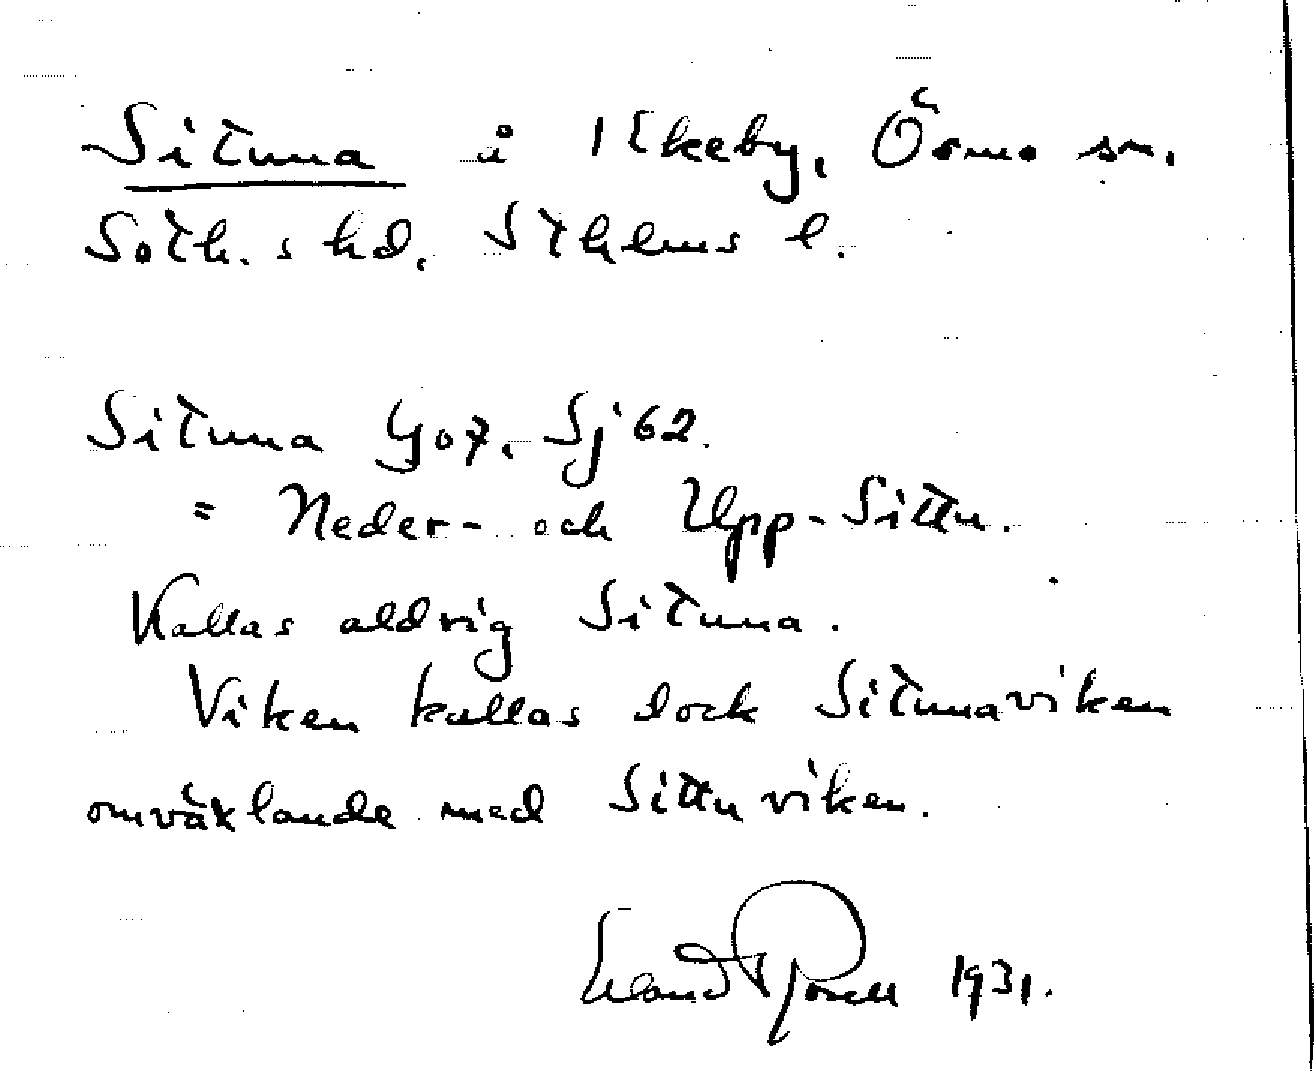 Situna å Ikeby, Ösmo sn.
Soth. s hd. Sthlms l.
Situna Go7. Sj 62.
= Neder- och Upp-Sittu.
Kallas aldrig Situna.
Viken kallas dock Situnaviken
omväxlande med Sittuviken.
Erland Rosell 1931.